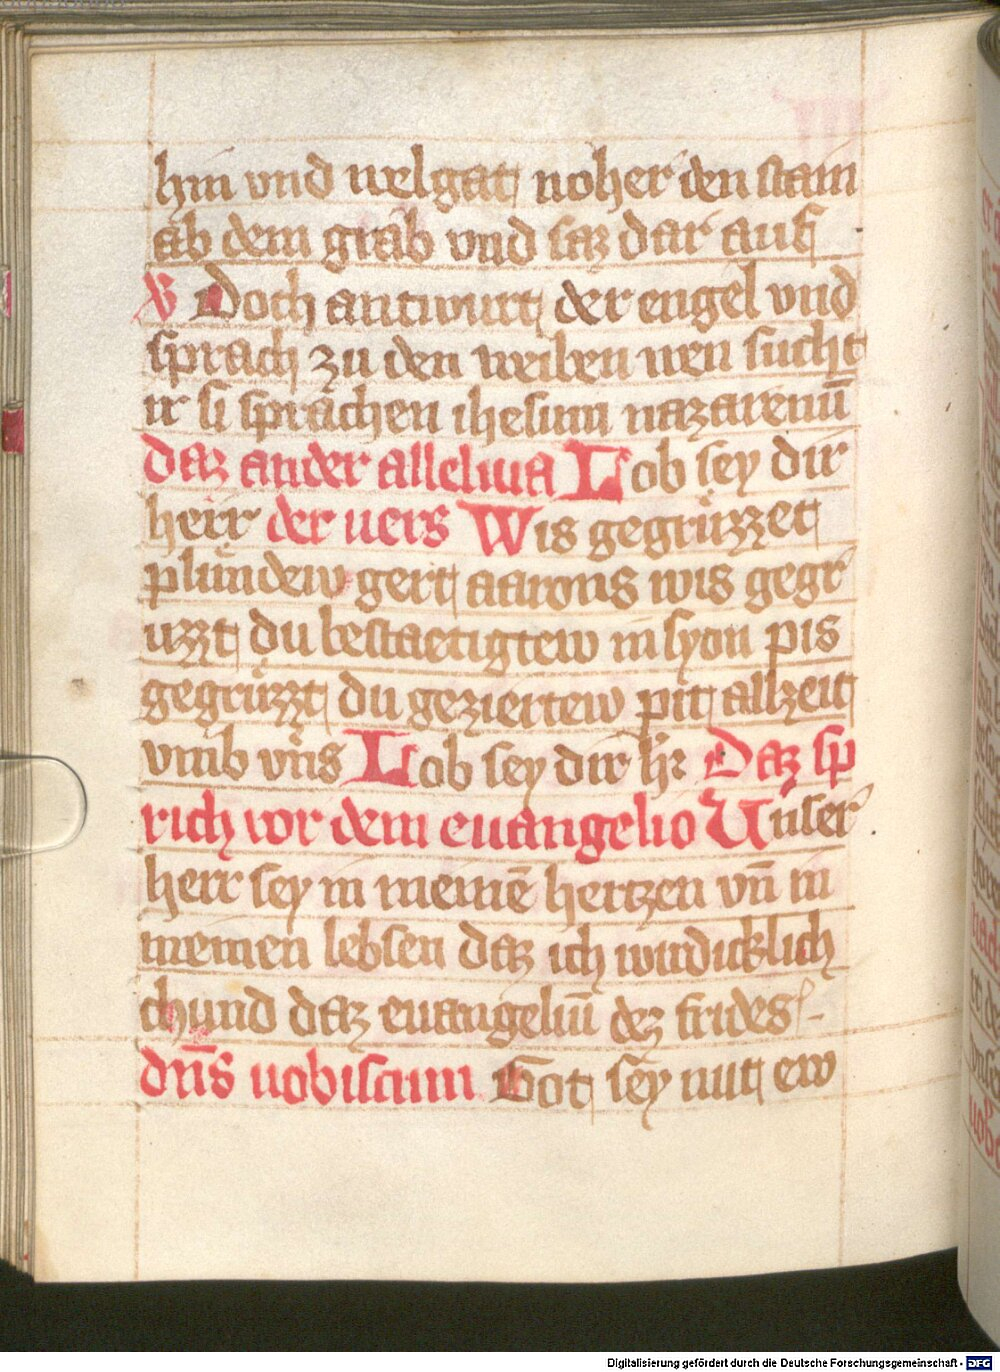 hin vnd welgat noher den stain
ab dem grab vnd saz dar auf
V Doch antwurt der engel vnd
sprach zu den weiben wen sucht
ir si sprachen ihesum nazarenū
daz ander alleluia Lob sey dir
herr der uers Wis gegrüzzet
plündew gert aarons wis gegr
uzzt du bestaetigtew in syon pis
gegrüzzt du geziertew pit allzeit
vmb vns Lob sey dir hr Daz sp
rich vor dem euangelio Unser
herr sey in meinē hertzen vn̄ in
meinen lebsen daz ich wirdicklich
chund daz euangeliū dez frides
dn̄s uobiscum Got sey mit ew
Digitalisierung gefördert durch die Deutsche Forschungsgemeinschaft - DFG